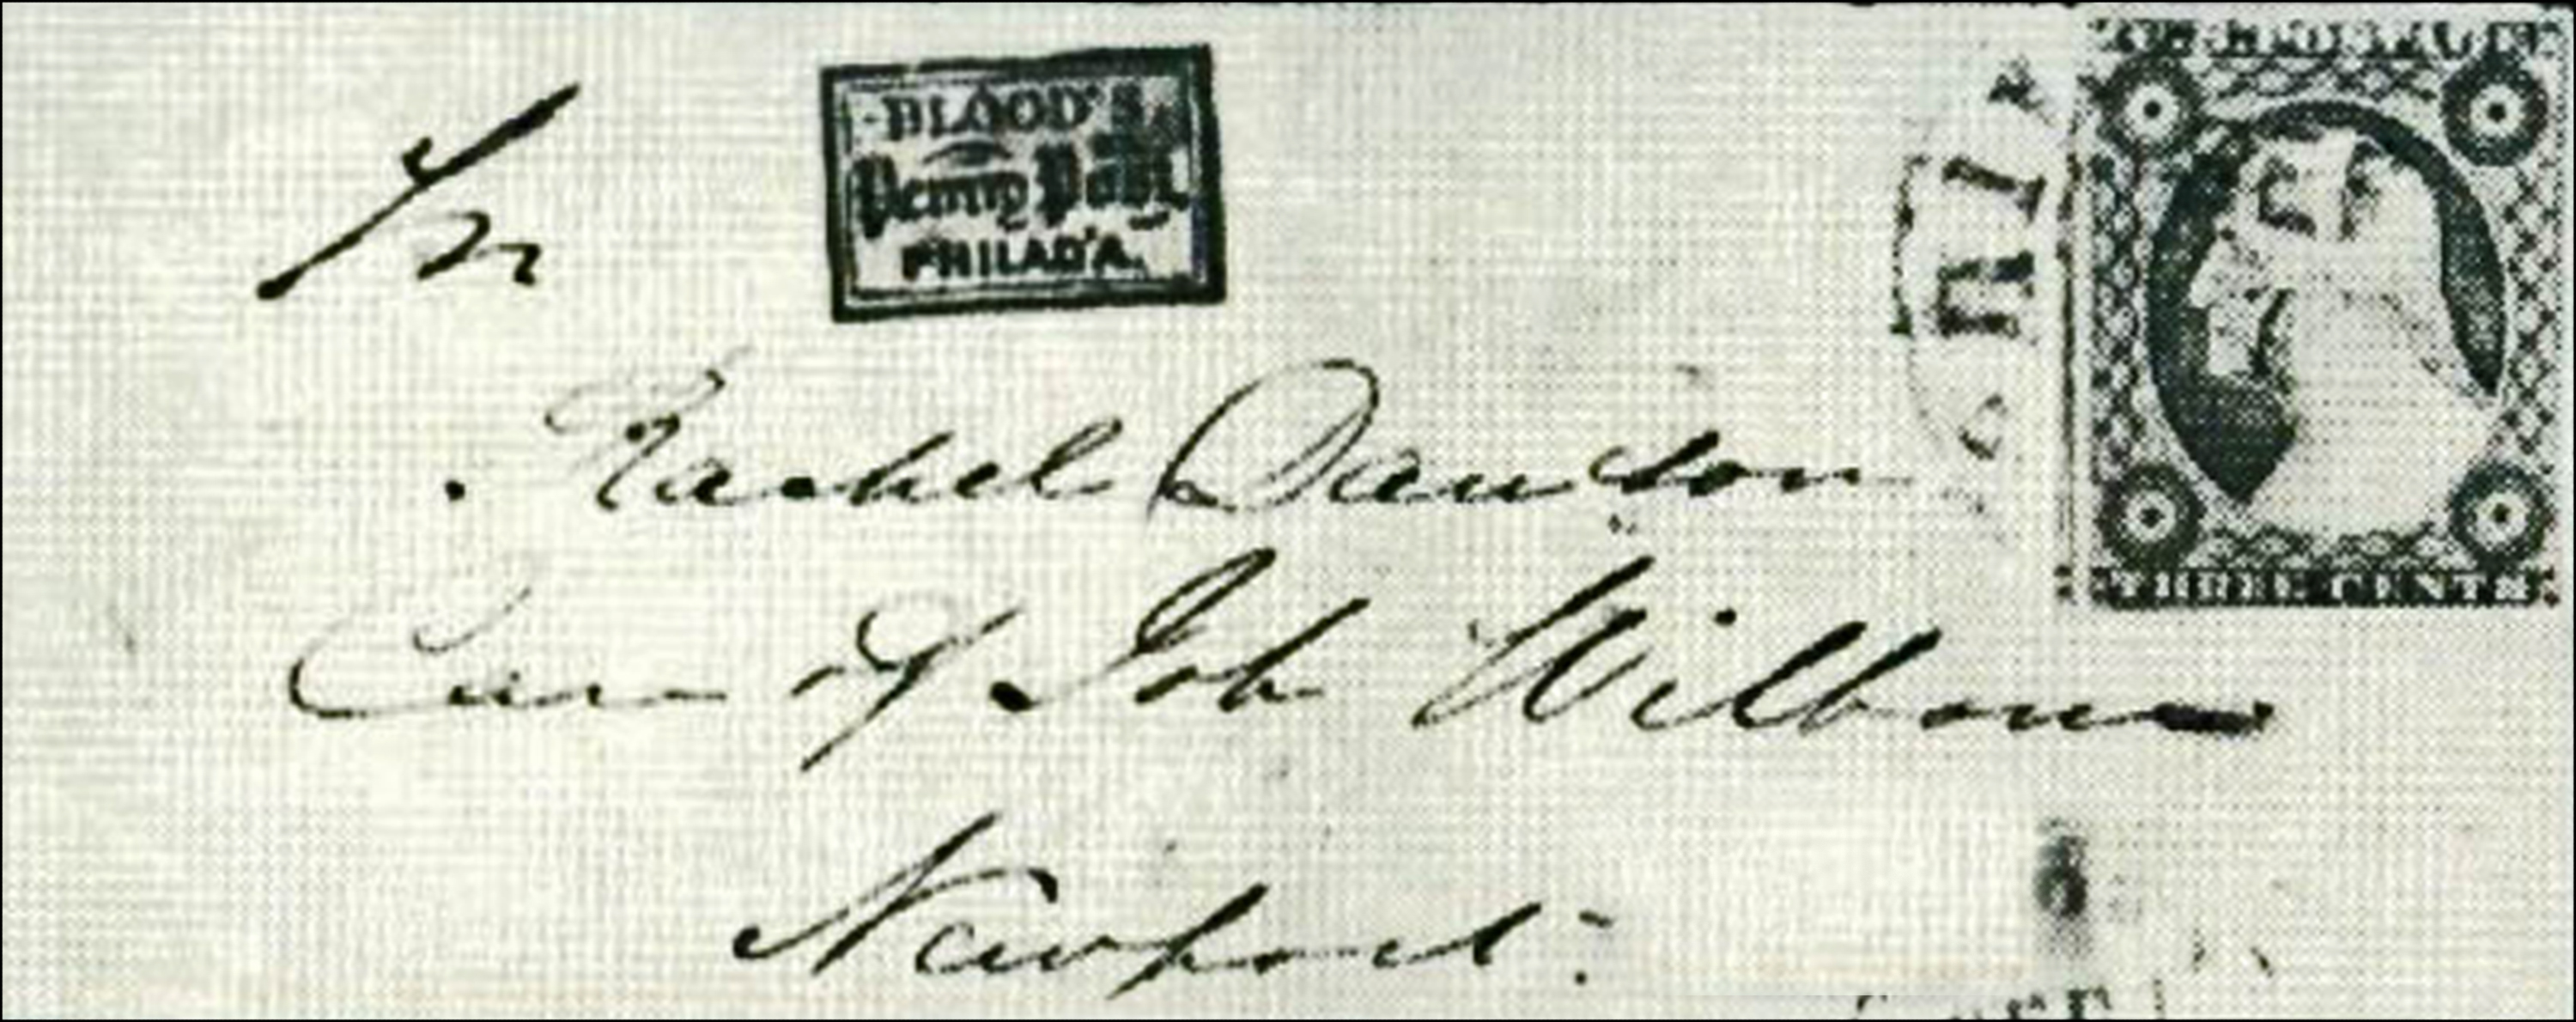 BLOOD'S
Penny Post
PHILAD'A.
Rachel Dawson
Care of Job Wilbour
Newport
THREE CENTS